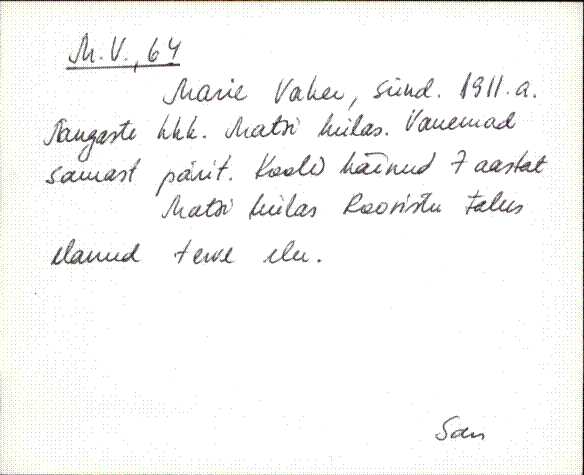 M.V., 64
Marie Vaher, sünd. 1911.a.
Sangaste khk. Matsi külas. Vanemad
samast pärit. Koolis käinud 7 aastat
Matsi külas Roovistu talus
elanud terve elu.
San